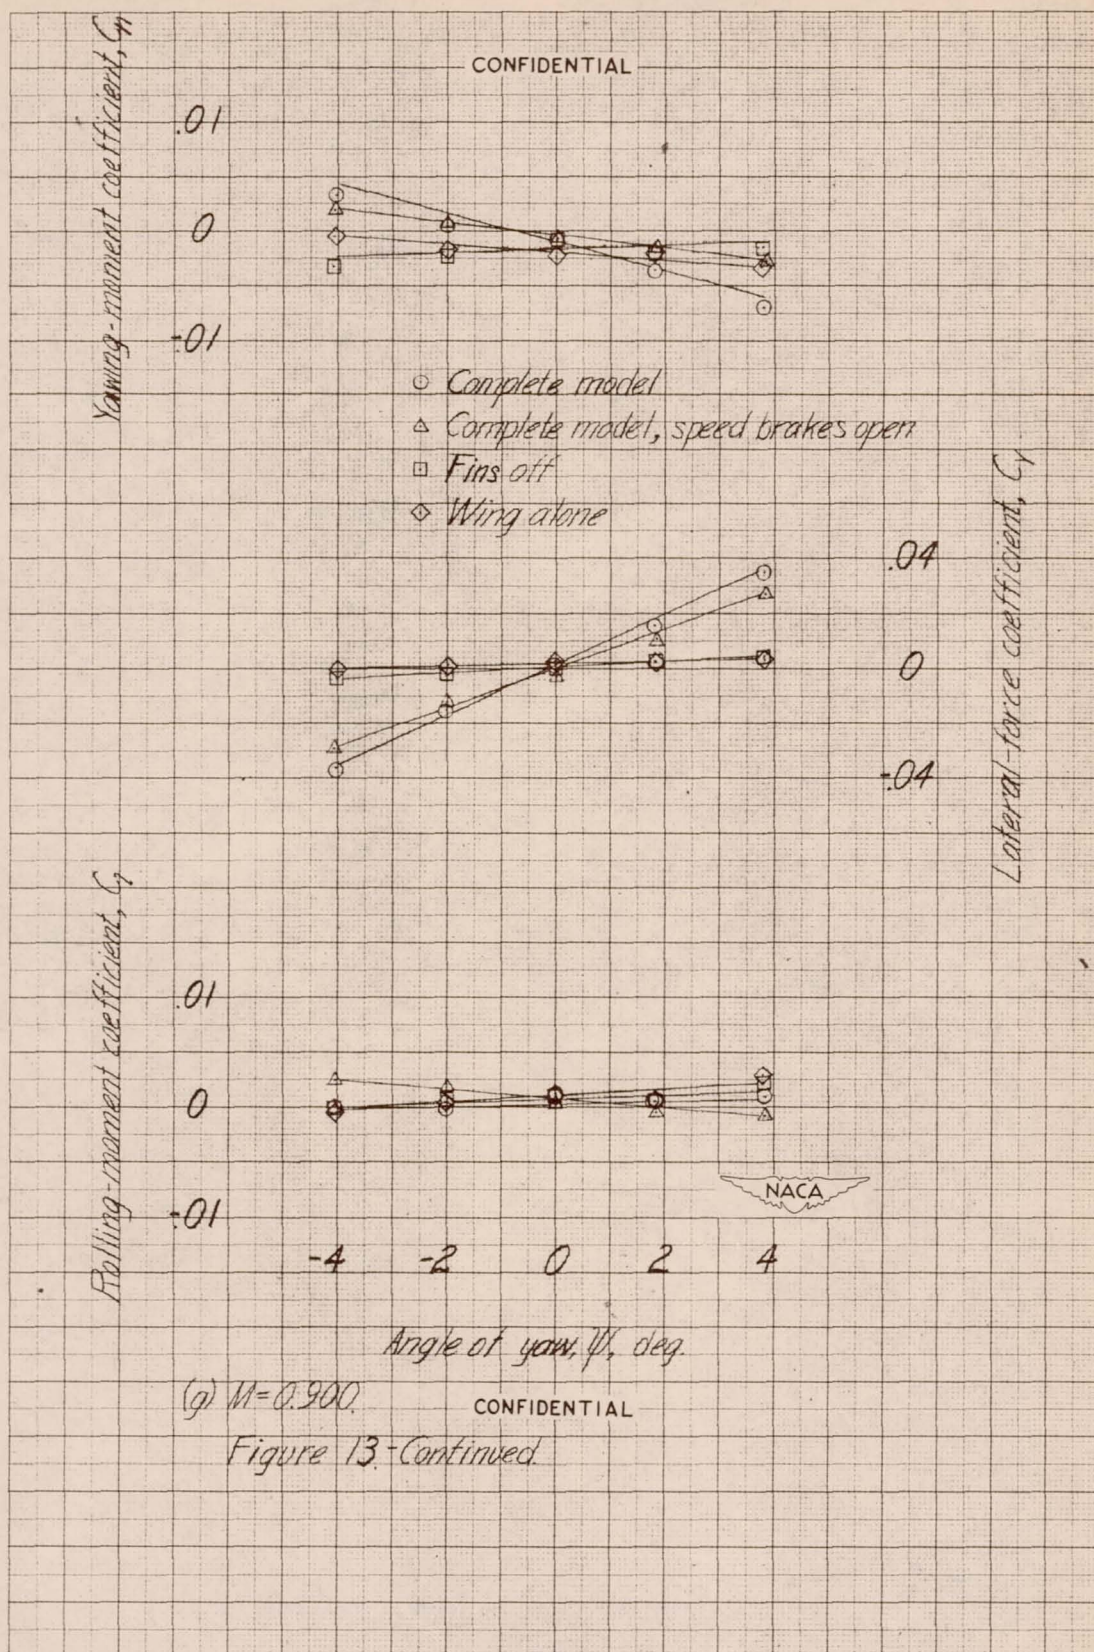 CONFIDENTIAL
Yawing-moment coefficient, Cn
.01
0
-.01
Complete model
Complete model, speed brakes open
Fins off
Wing alone
Lateral-force coefficient, CY
.04
0
-.04
Rolling-moment coefficient, Cl
.01
0
-.01
NACA
-4 -2 0 2 4
Angle of yaw, ψ, deg.
(g) M=0.900.
CONFIDENTIAL
Figure 13.-Continued.